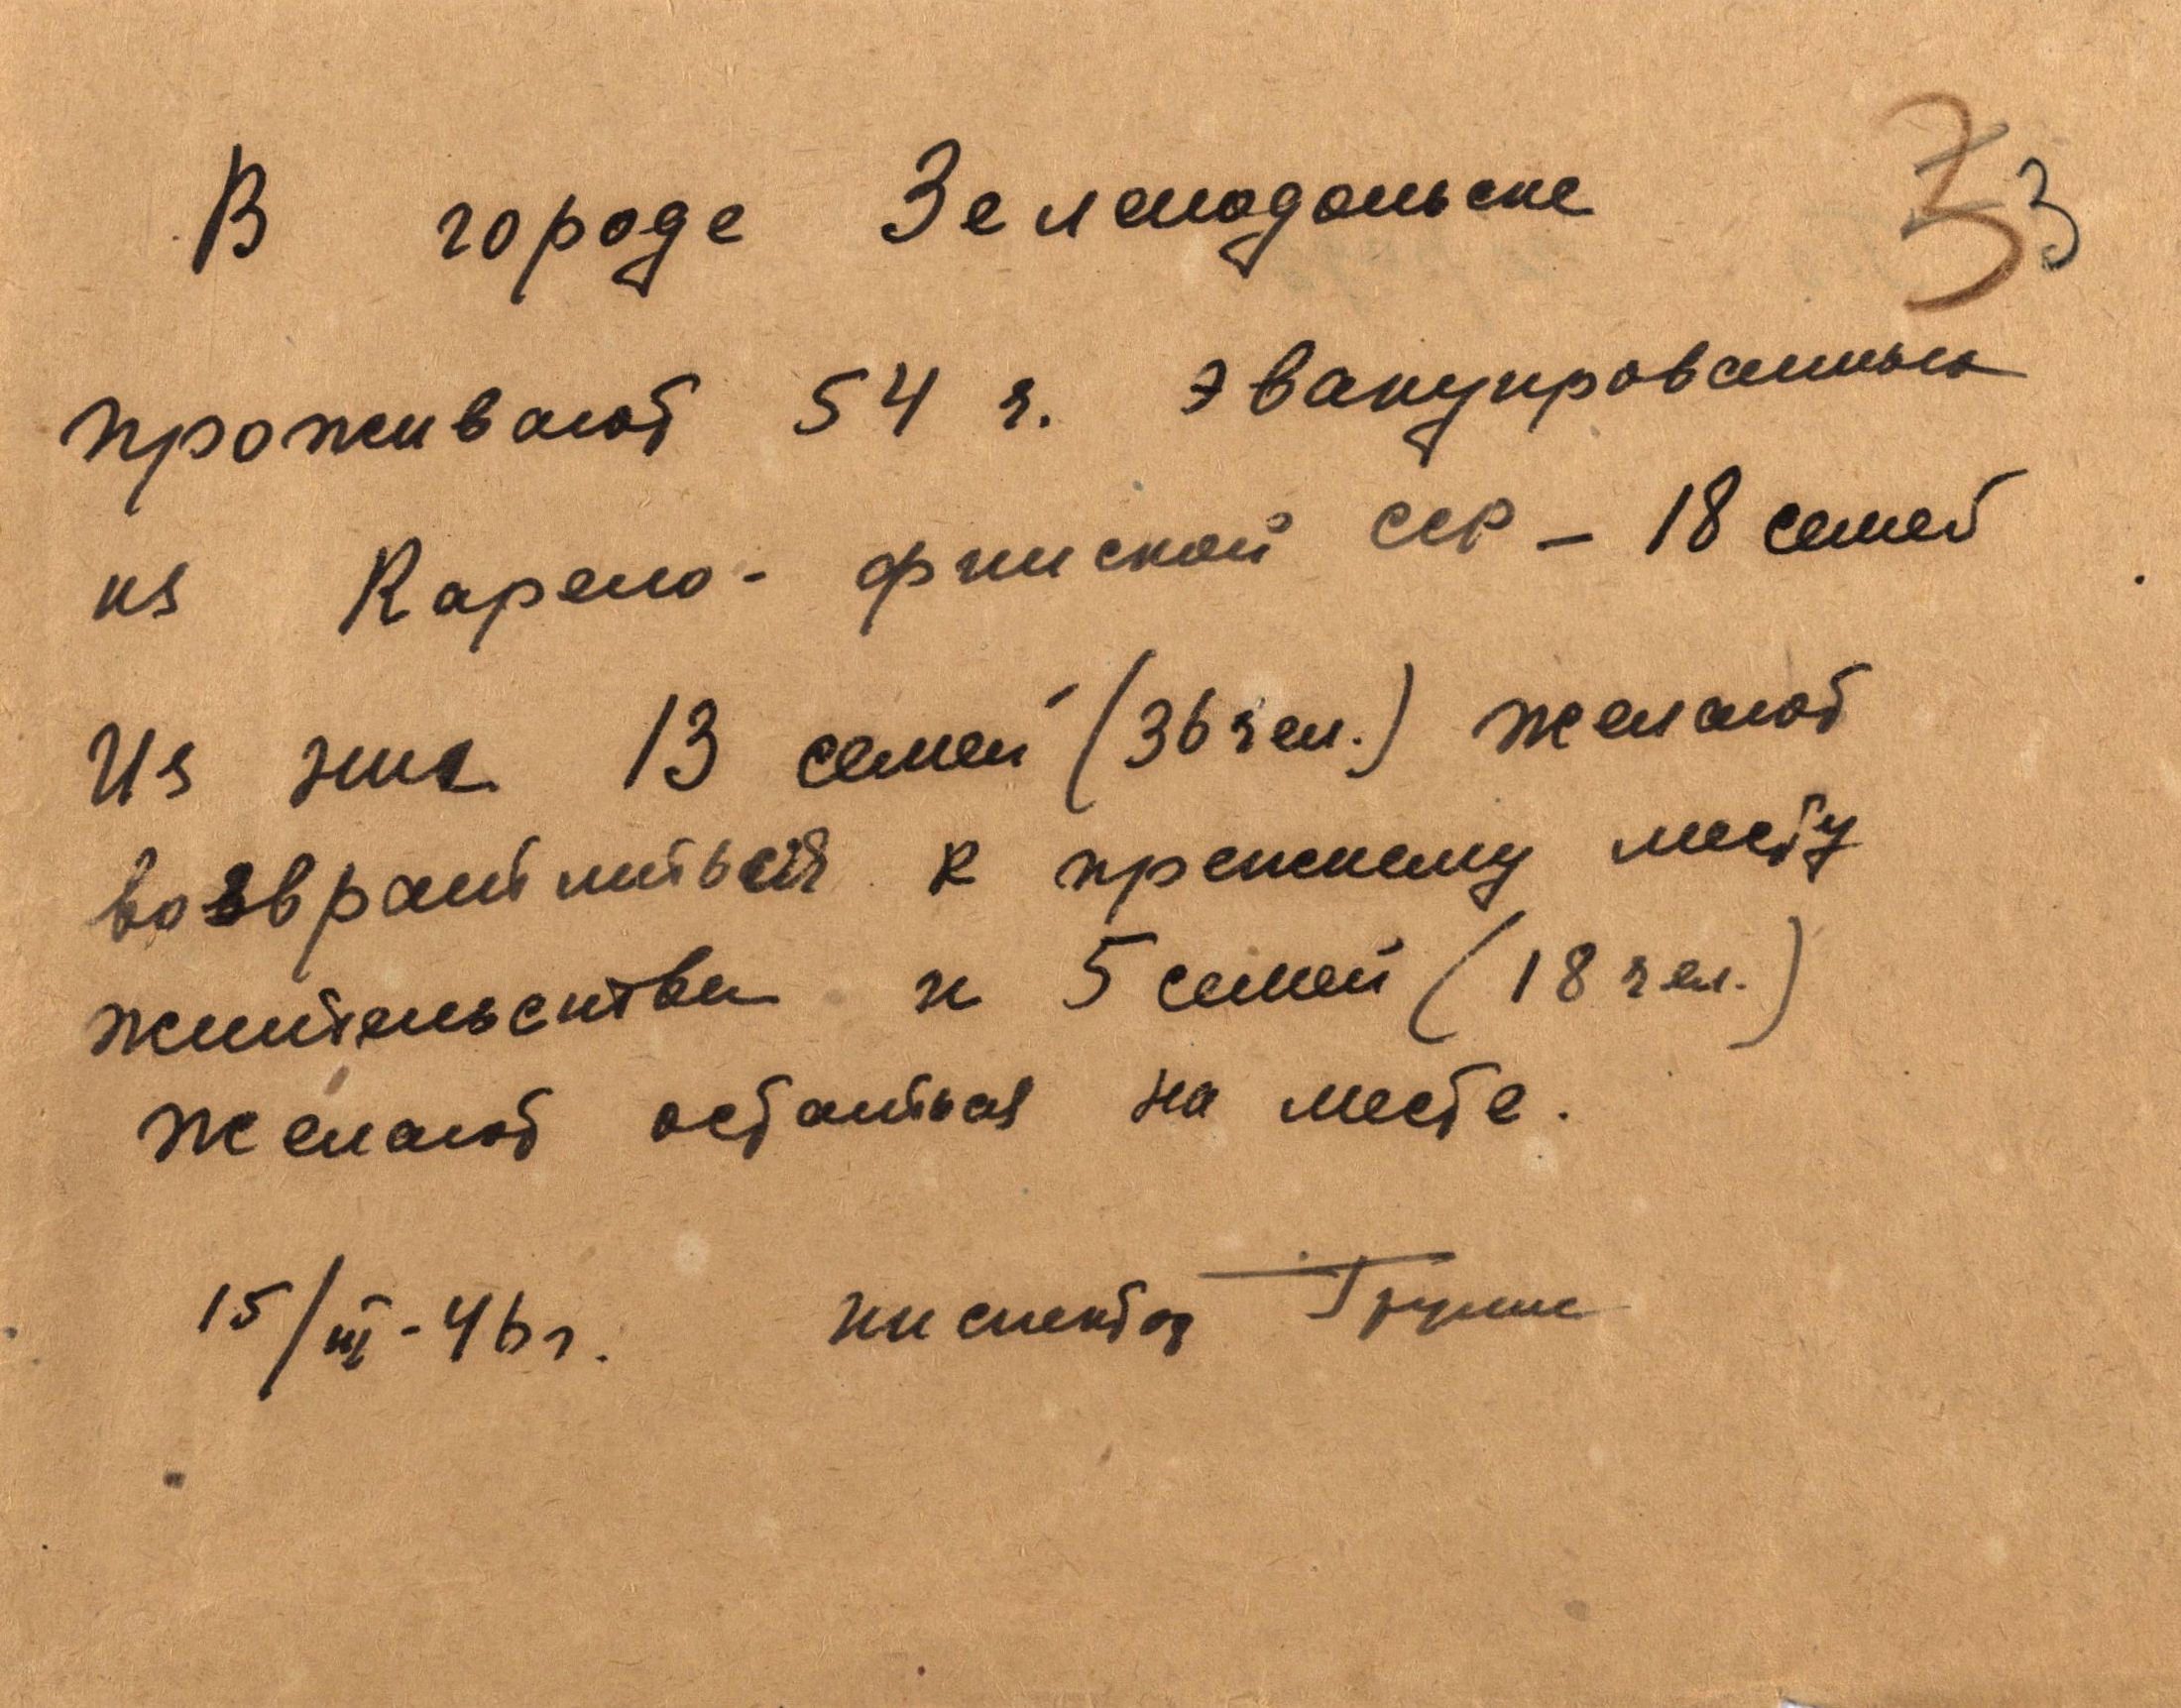 В городе Зеленодольске
33
проживают 54 ч. эвакуированных
из Карело-финской ССР – 18 семей
Из них 13 семей (36 чел.) желают
возвратиться к прежнему месту
жительства и 5 семей (18 чел.)
желают остаться на месте.
15/III-46 г. инспектор